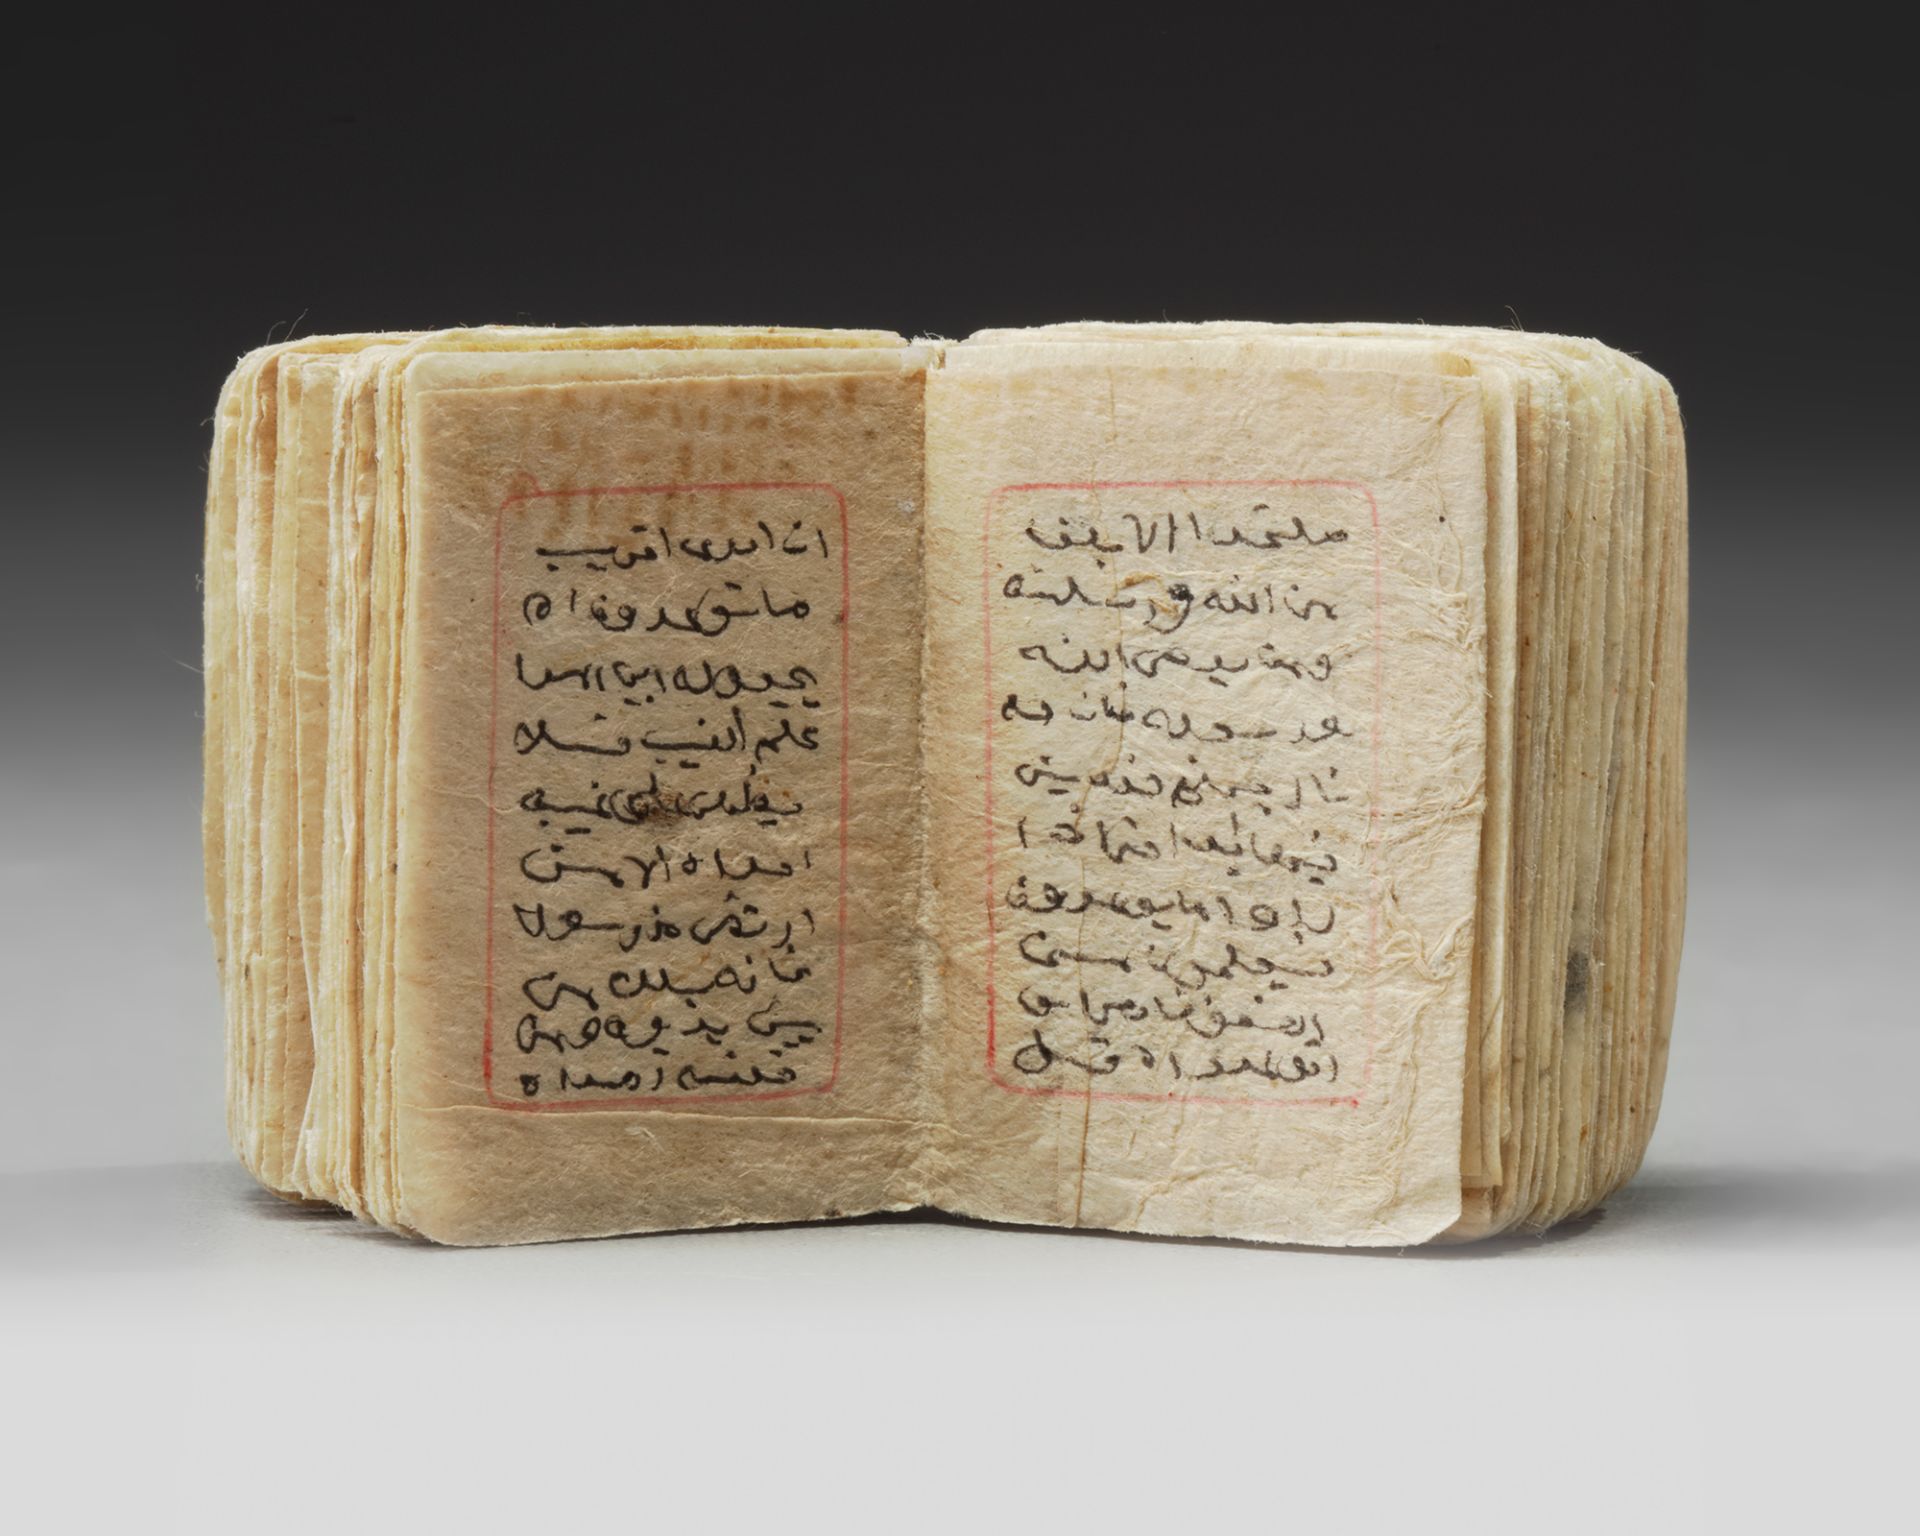 ملتحدا الا بلغا
من الله ورسلته
ومن يعص الله
ورسوله فان له
نار جهنم خلدين
فيها ابدا حتى اذا
راوا ما يوعدون
فسيعلمون من
اضعف ناصرا و
اقل عددا ه قل
ان ادرى اقريب
ما توعدون ام
يجعل له ربى امدا
علم الغيب فلا
يظهر على غيبه
احدا ه الا من
ارتضى من رسول
فانه يسلك من
بين يديه ومن
خلفه رصدا ه